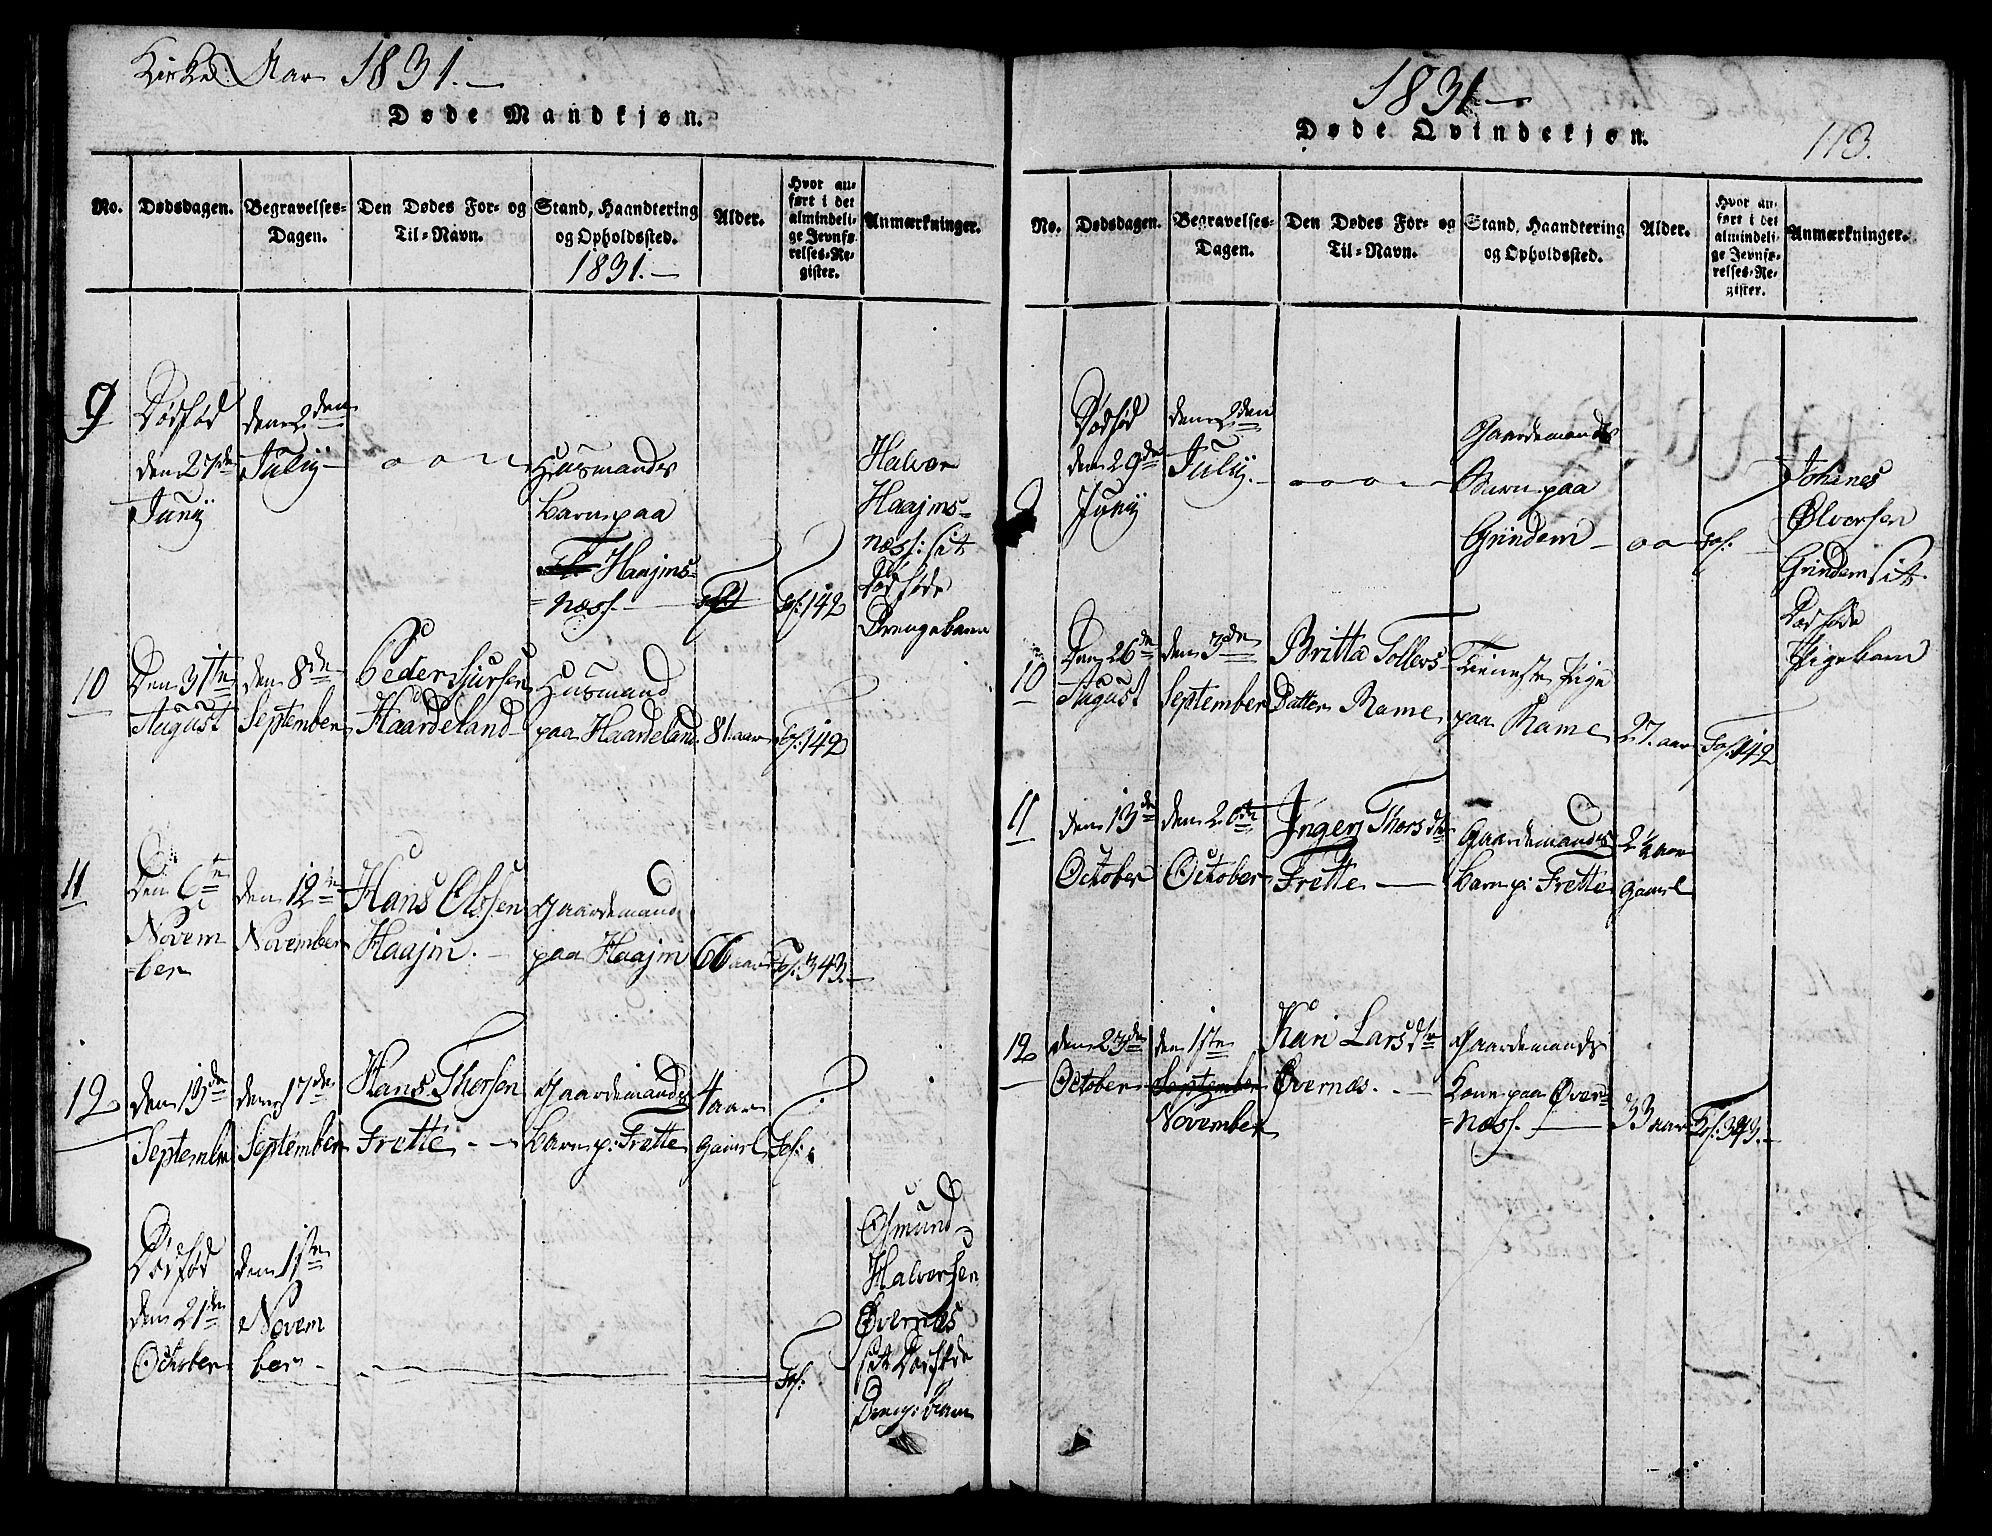 Kirke Aar 1831.—
Døde Mandkjøn.
No.
Dødsdagen.
Begravelses-
Dagen.
Den Dødes For- og
Til-Navn.
Stand, Haandtering
og Opholdssted.
1831.—
Alder.
Hvor an-
ført i det
almindeli-
ge Jevnfø-
relses-Re-
gister.
Anmærkninger.
9
Dødfød
den 27de
Juny
den 2den
July
Huusmands
Barn paa
Haajms-
næss.
Fol: 142
Halvor
Haajms-
næss: sit
Dødfødte
Drengebarn
10
Den 31te
August
den 8de
September
Peder Siursen
Haardeland
Huusmand
paa Haardeland
81 aar
Fol: 142
11
Den 6te
Novem
-ber
den 12te
November
Hans Olssen
Haajm.
Gaardemand
paa Haajm
66 aar
Fol: 343.
12
Den 13de
September
den 17de
September
Hans Thorsen
Frette
Gaardemands
Barn p: Frette
4 aar
gamel
Fol:
Dødfød
den 21de
October
den 1ste
Novem
ber
Fol:
Osmund
Halvorsen
Øvernæs
sit Dødfødte
Drengebarn
1831—
Døde Qvindekjøn.
113.
No.
Dødsdagen.
Begravelses-
Dagen.
Den Dødes For- og
Til-Navn.
Stand, Haandtering
og Opholdssted.
Alder.
Hvor an-
ført i det
almindeli-
ge Jevnfø-
relses-Re-
gister.
Anmærkninger.
9
Dødfød
den 29de
Juny
den 2den
July.
Gaardemands
Barn paa
Grindem
Fol:
Johanes
Ølversen
Grindem sit
Dødfødte
Pigebarn
10
Den 26de
August
den 3de
September
Britta Tollevs
Datter Rame
Tieneste Pige
paa Rame
27 aar
Fol: 142
11
den 13de
October
den 20de
October
Inger Thorsdtr
Frette
Gaardemands
Barn p: Frette
2½ aar
gamel
12
den 23de
October
den 1ste
September
November
Kari Larsdtr
Øvernæs.
Gaardemands
Kone paa Øver-
=næss.
33 aar
Fol: 393.